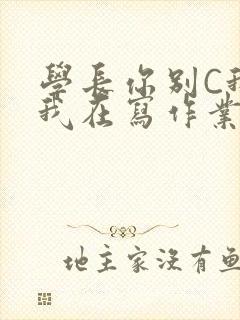 學長你別C我
我在寫作業
地主家沒有魚